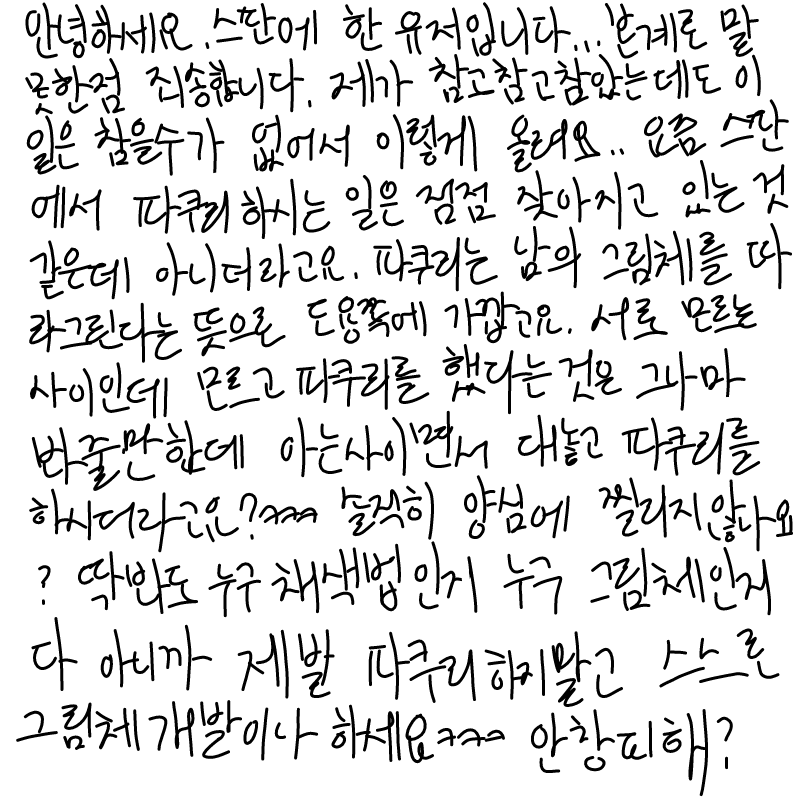 안녕하세요.스딴에 한 유저입니다...본계로 말
못한점 죄송합니다. 제가 참고참고참았는데도 이
일은 참을수가 없어서 이렇게 올려요.. 요즘 스딴
에서 파쿠리하시는 일은 점점 잦아지고 있는 것
같은데 아니더라고요. 파쿠리는 남의 그림체를 따
라그린다는 뜻으론 도용쪽에 가깝고요. 서로 모르는
사이인데 모르고 파쿠리를 했다는것은 그나마
봐줄만한데 아는사이면서 대놓고 파쿠리를
하시더라고요?ㅋㅋㅋ 솔직히 양심에 찔리지않나요
? 딱봐도 누구 채색법인지 누구 그림체인지
다 아니까 제발 파쿠리하지말고 스스론
그림체개발이나 하세요ㅋㅋㅋ 안창피해?